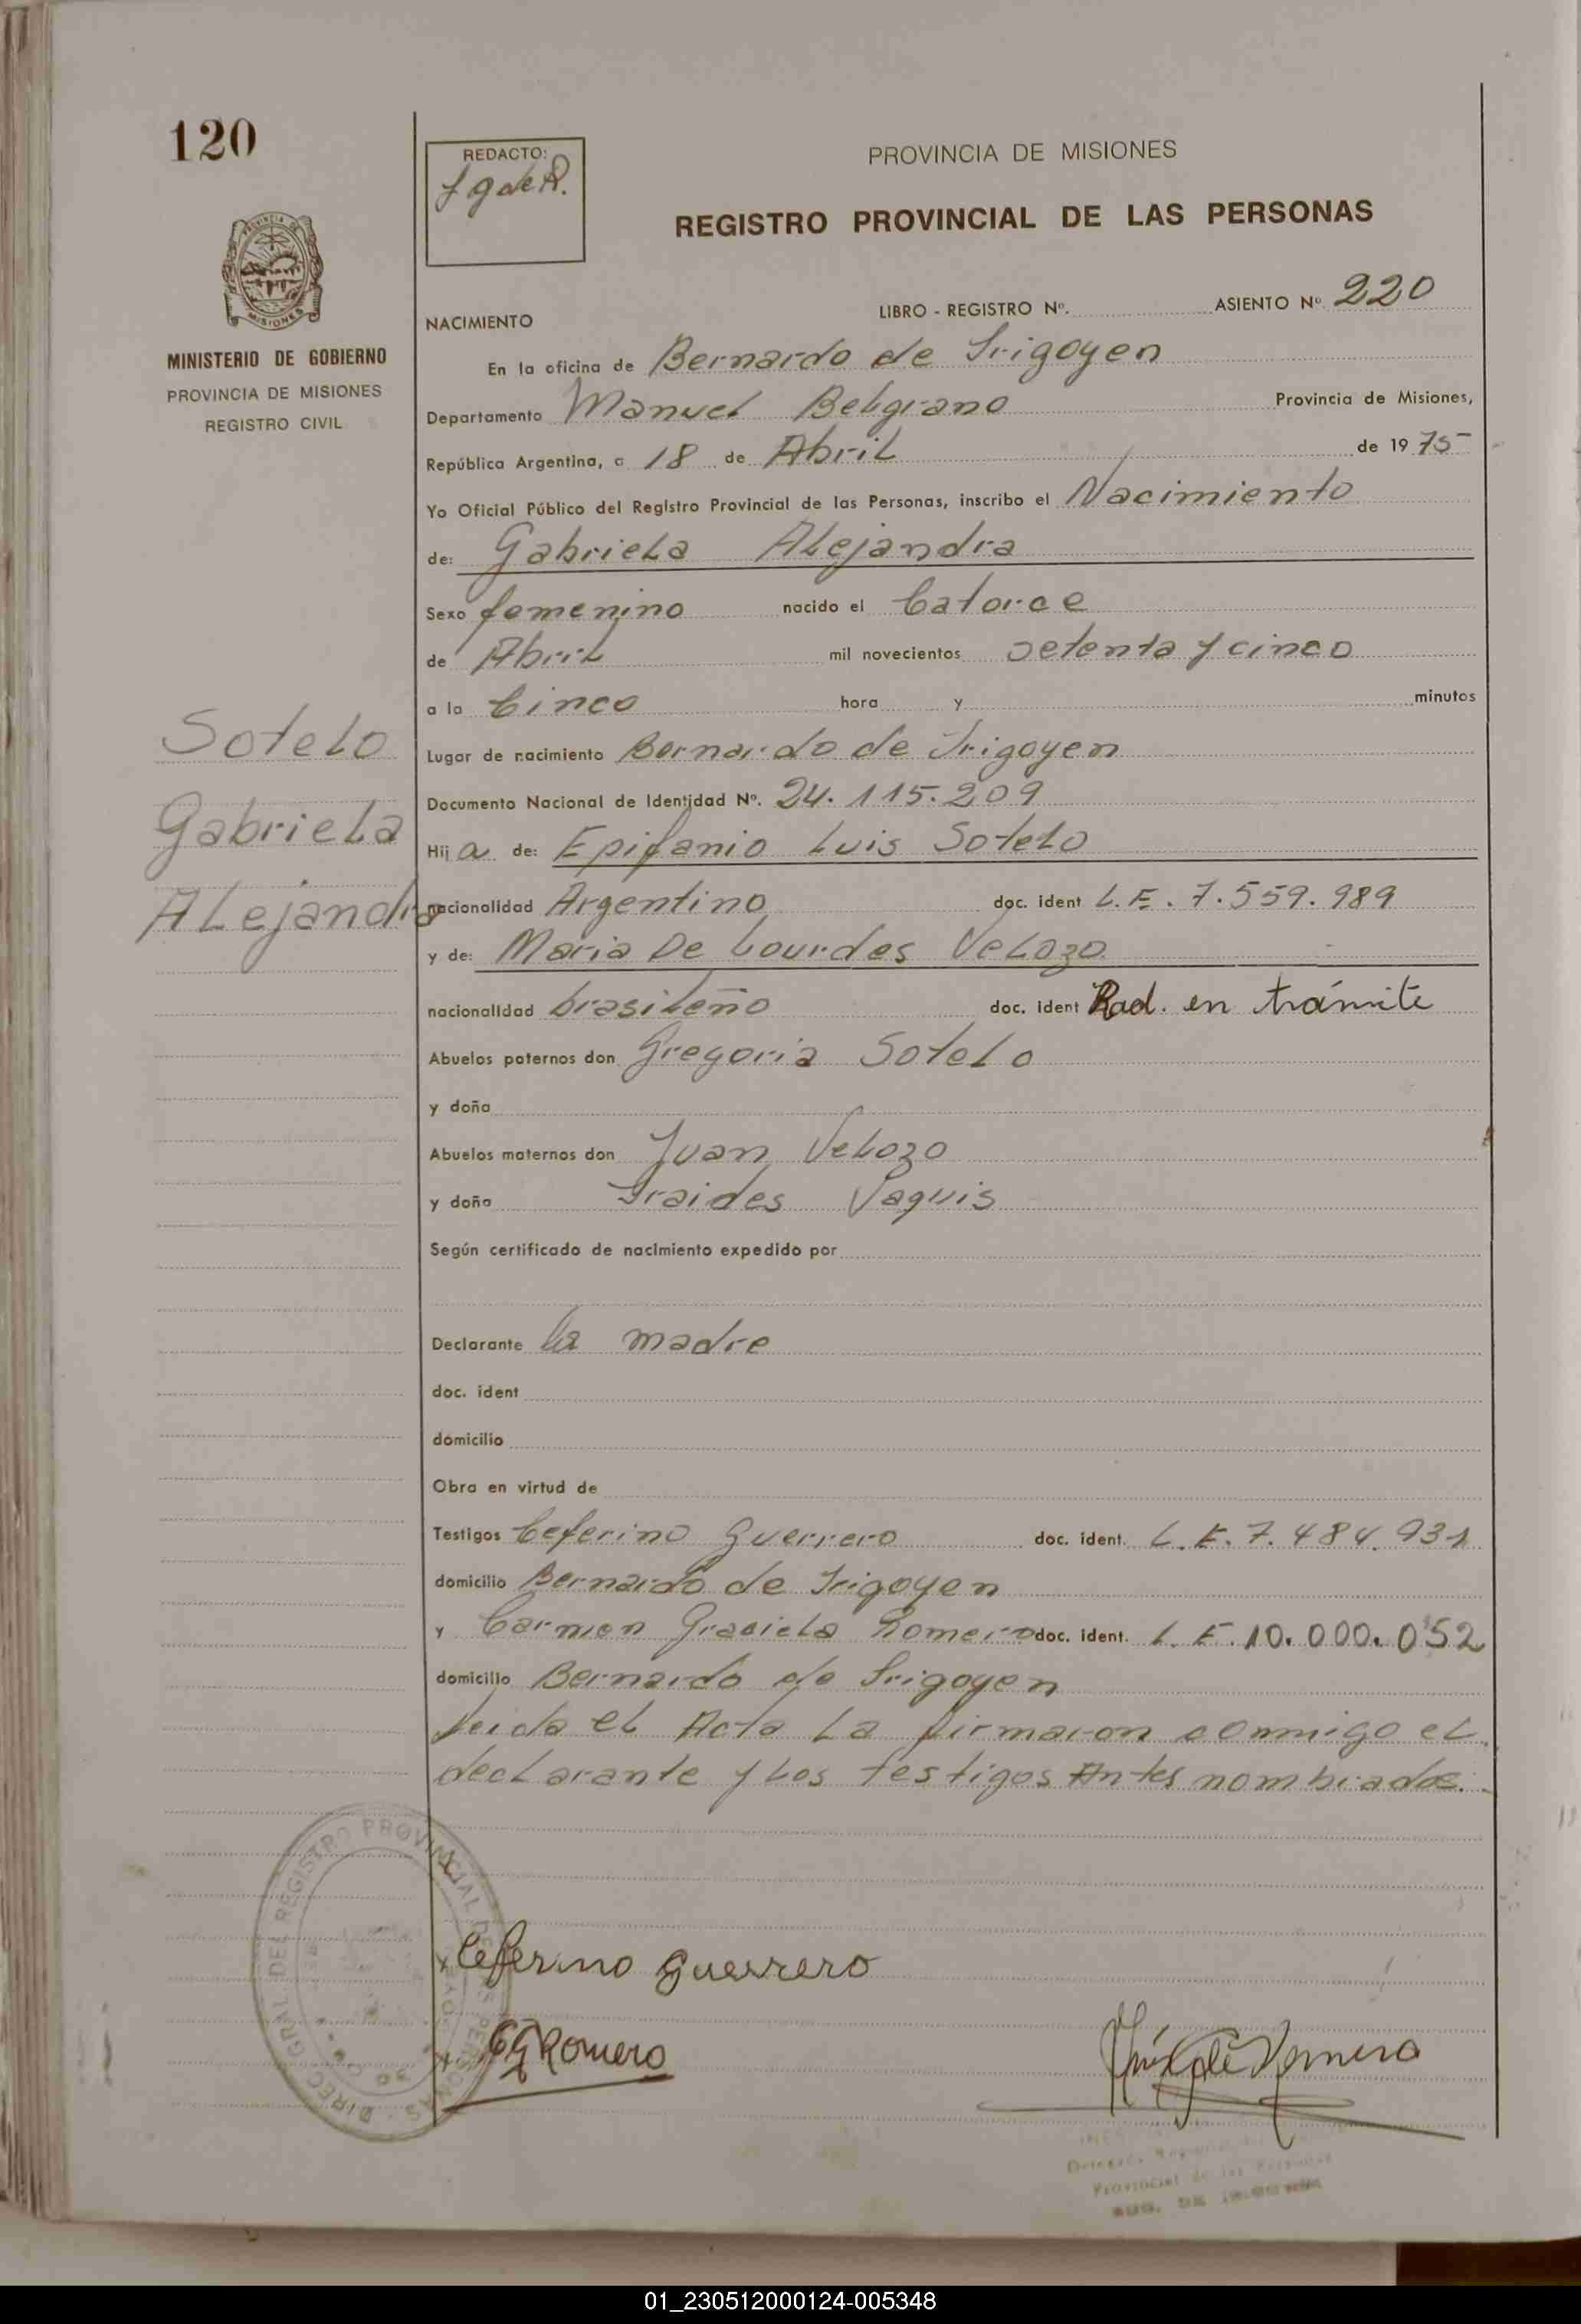 120
REDACTO:
PROVINCIA DE MISIONES
REGISTRO PROVINCIAL DE LAS PERSONAS
MISIONES
MINISTERIO DE GOBIERNO
PROVINCIA DE MISIONES
REGISTRO CIVIL
NACIMIENTO LIBRO - REGISTRO Nº. ASIENTO Nº 220
En la oficina de Bernardo de Irigoyen
Departamento Manuel Belgrano Provincia de Misiones,
República Argentina, a 18 de Abril de 1975
Yo Oficial Público del Registro Provincial de las Personas, inscribo el Nacimiento
de: Gabriela Alejandra
Sexo femenino nacido el Catorce
de Abril mil novecientos setenta y cinco
a la Cinco hora y minutos
Sotelo
Gabriela
Alejandra
Lugar de nacimiento Bernardo de Irigoyen
Documento Nacional de Identidad Nº. 24.115.209
Hij a de: Epifanio Luis Sotelo
nacionalidad Argentino doc. ident L.E. 7.559.989
y de: Maria De Lourdes Velozo
nacionalidad brasileño doc. ident Rad. en trámite
Abuelos paternos don Gregoria Sotelo
y doña
Abuelos maternos don Juan Velozo
y doña Iraides Vaguis
Según certificado de nacimiento expedido por
Declarante la madre
doc. ident
domicilio
Obra en virtud de
Testigos Ceferino Guerrero doc. ident. L.E. 7.484.931
domicilio Bernardo de Irigoyen
y Carmen Graciela Romero doc. ident. L.E. 10.000.052
domicilio Bernardo de Irigoyen
leida el Acta la firmaron conmigo el
declarante y los testigos Antes nombrados.
DIREC. GRAL. DEL REGISTRO PROVINCIAL DE LAS PERSONAS
Ceferino Guerrero
CGRomero
Provincial de las Personas
01_230512000124-005348